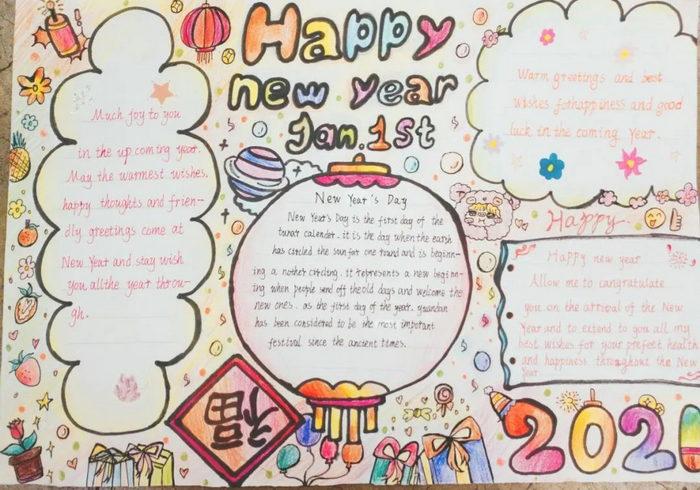 Happy
new year
Jan.1st
Much joy to you
in the up coming year.
May the warmest wishes,
happy thoughts and frien-
dly greetings come at
New Year and stay wish
you all the year throu-
gh.
New Year's Day
New Year's Day is the first day of the
lunar calender. it is the day when the earsh
has circled the sun for one round and is beginn-
ing a nother circling. it represents a new beginn-
ing when people send off the old days and welcome the
new ones. as the first day of the year. yuandan
has been considered to be the most important
festival since the ancient times.
福
Warm greetings and best
wishes for happiness and good
luck in the coming Year.
Happy
Happy new year
Allow me to cangratulate
you on the arrival of the New
Year and to extend to you all my
best wishes for your prefeet health
and happiness throughout the New
Year
202